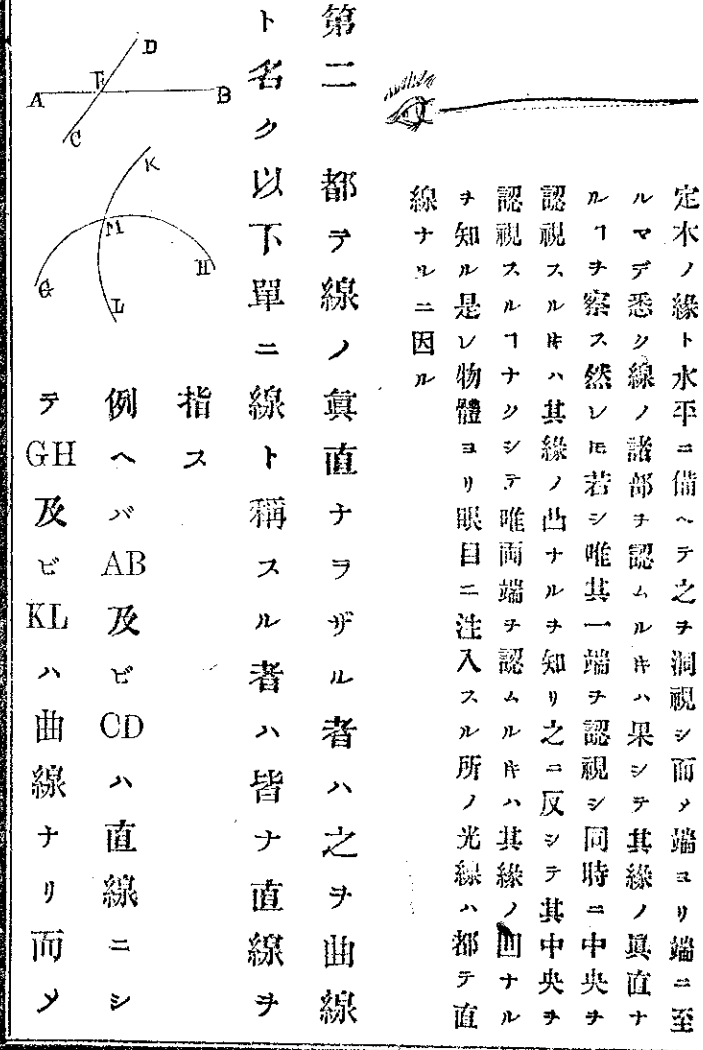 定木ノ緣ト水平ニ備ヘテ之ヲ洞視シ而〆端ヨリ端ニ至
ルマデ悉ク線ノ諸部ヲ認ムルキハ果シテ其緣ノ眞直ナ
ルヿヲ察ス然レ𪜈若シ唯其一端ヲ認視シ同時ニ中央ヲ
認視スルキハ其緣ノ凸ナルヲ知リ之ニ反シテ其中央ヲ
認視スルヿナクシテ唯兩端ヲ認ムルキハ其緣ノ凹ナル
ヲ知ル是レ物體ヨリ眼目ニ注入スル所ノ光線ハ都テ直
線ナルニ因ル
第二 都テ線ノ眞直ナラザル者ハ之ヲ曲線
ト名ク以下單ニ線ト稱スル者ハ皆ナ直線ヲ
指ス
例ヘバAB及ビCDハ直線ニシ
テGH及ビKLハ曲線ナリ而〆
A
B
C
D
E
G
H
K
L
M